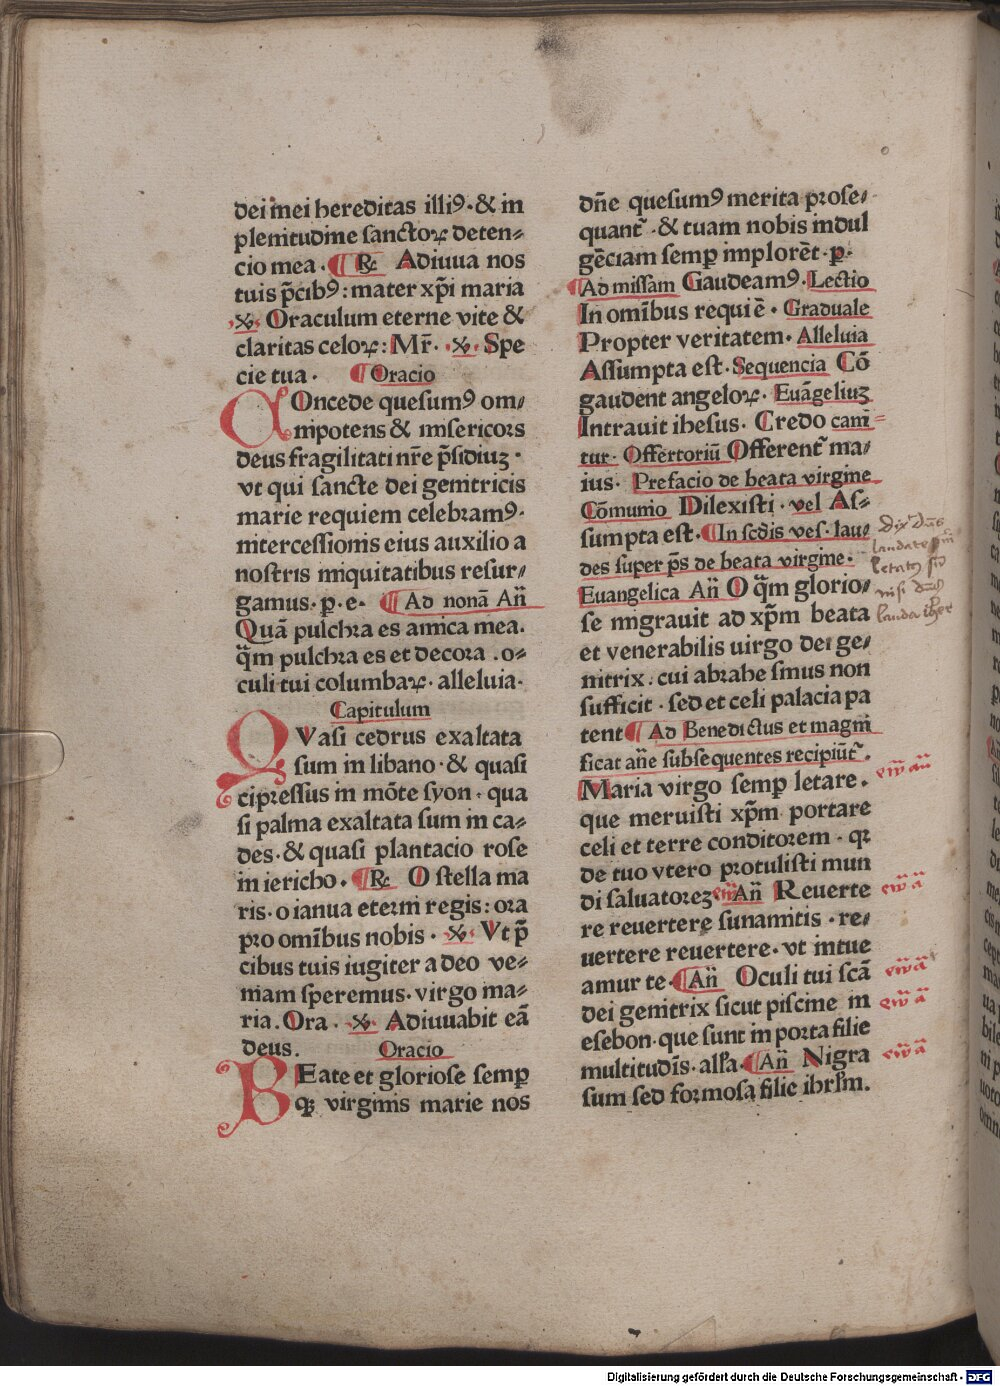 dei mei hereditas illiꝰ·& in
plenitudine sanctoꝝ deten⸗
cio mea. ¶ R̃ Adiuua nos
tuis p̄cibꝰ: mater xp̄i maria
℣ Oraculum eterne vite &
claritas celoꝝ: Mr̄· ℣· Spe
cie tua· ¶ Oracio
COncede quesumꝰ om⸗
nipotens & misericors
deus fragilitati nr̄e p̄sidiuꝫ·
vt qui sancte dei genitricis
marie requiem celebramꝰ·
intercessionis eius auxilio a
nostris iniquitatibus resur⸗
gamus·p·e· ¶ Ad nonā An̄
Quā pulchra es amica mea.
q̄m pulchra es et decora .o⸗
culi tui columbaꝝ· alleluia·
Capitulum
QVasi cedrus exaltata
sum in libano·& quasi
cipressus in mōte syon· qua
si palma exaltata sum in ca⸗
des·& quasi plantacio rose
in iericho. ¶ R̃ O stella ma
ris·o ianua eterni regis: ora
pro omībus nobis· ℣· Vt p̄
cibus tuis iugiter a deo ve⸗
niam speremus·virgo ma⸗
ria.Ora· ℣· Adiuuabit eā
deus. Oracio
BEate et gloriose semꝑ
qꝫ virginis marie nos
dn̄e quesumꝰ merita prose⸗
quant᷑·& tuam nobis indul
gēciam semꝑ implorēt·p·
¶Ad missam Gaudeamꝰ·Lectio
In omībus requiē· Graduale
Propter veritatem· Alleluia
Assumpta est·Sequencia Cō
gaudent angeloꝝ· Euāgeliuꝫ
Intrauit ihesus· Credo cani⸗
tur· Offertoriū Offerent᷑ ma⸗
ius· Prefacio de beata virgine
Cōmunio Dilexisti·vel As⸗
sumpta est·¶In scdis ves·lau⸗
des super ps̄ de beata virgine·
Euangelica An̄ O q̄m glorio⸗
se migrauit ad xp̄m beata
et venerabilis uirgo dei ge⸗
nitrix·cui abrahe sinus non
sufficit·sed et celi palacia pa
tent¶ Ad Benedictus et magni
ficat an̄e subsequentes recipiūt᷑·
Maria virgo semꝑ letare.
que meruisti xp̄m portare
celi et terre conditorem·qꝛ
de tuo vtero protulisti mun
di saluatoreꝫ An̄ Reuerte
re reuertere sunamitis·re⸗
uertere reuertere·vt intue
amur te·¶An̄ Oculi tui scā
dei genitrix sicut piscine in
esebon·que sunt in porta filie
multitudīs·all̄a·¶An̄ Nigra
sum sed formosa filie ihrl̄m.
dix̄ dn̄s
laudate
letatꝰ
nisi dn̄s
lauda
Digitalisierung gefördert durch die Deutsche Forschungsgemeinschaft - DFG